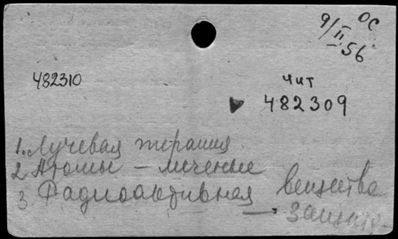 9/II 56 ОС
482310
чит
482309
1. Лучевая терапия
2 Атомы – меченые
3 Радиоактивная вещества
–